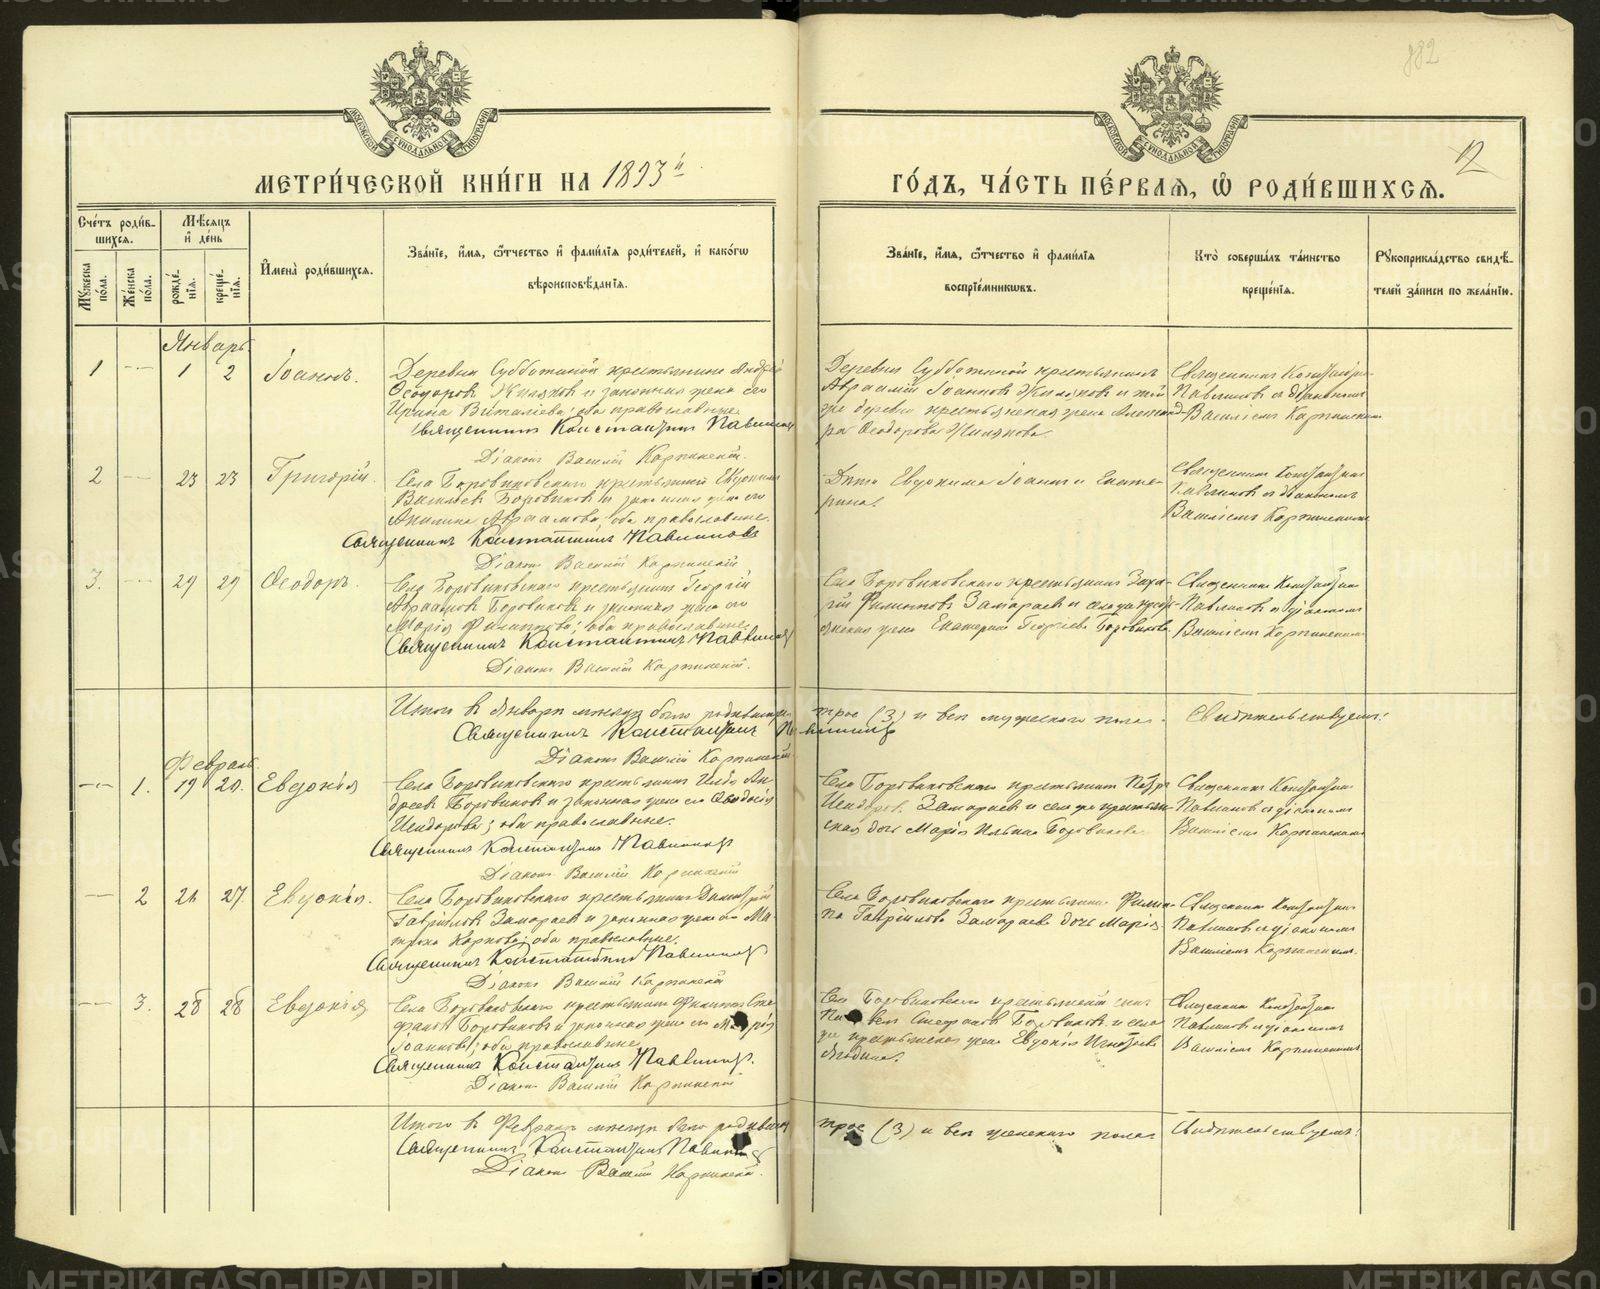 882
12
МОСКОВСКОЙ СѴНОДАЛЬНОЙ ТИПОГРАФІИ
МОСКОВСКОЙ СѴНОДАЛЬНОЙ ТИПОГРАФІИ
МЕТРИ́ЧЕСКОЙ КНИ́ГИ НА 1893 й
ГО́ДЪ, ЧА́СТЬ ПЕ́РВАЯ, Ѽ РОДИ́ВШИХСЯ.
Сче́тъ роди́в-
шихся.
Мѣ́сяцъ
и҆ де́нь
Мꙋ́жеска по́ла.
Же́нска по́ла.
рожде́-
нїя.
креще́-
нїя.
И҆мена̀ роди́вшихся.
Зва́нїе, и҆́мя, ѻ҆́тчество и҆ фами́лїя роди́телей, и҆ како́гѡ
вѣроисповѣ́данїя.
Зва́нїе, и҆́мя, ѻ҆́тчество и҆ фами́лїя
воспрїе́мникѡвъ.
Кто̀ соверша́лъ та́инство
креще́нїя.
Рꙋкоприкла́дство свидѣ́-
телей за́писи по жела́нїю.
Январь
1 — 1 2 Іоаннъ.
Деревни Субботиной крестьянинъ Андрей
Ѳеодоровъ Жиляков и законная жена его
Ирина Виталіева; оба православные.
Священникъ Константинъ Павлинов
Діаконъ Василій Карпинскій.
Деревни Субботиной крестьянинъ
Авраамій Іоаннов Жиляков и той
же деревни крестьянская жена Александ-
ра Ѳеодорова Жилякова.
Священникъ Константин
Павлинов с діаконом
Василіем Карпинским
2 — 23 23 Григорій.
Села Боровиковскаго крестьянин Евдоким
Васильев Боровиков и законная жена его
Акилина Авраамова; оба православные.
Священникъ Константинъ Павлиновъ
Діаконъ Василій Карпинскій
Дѣти Евдокима Іоанн и Екате-
рина.
Священник Константин
Павлинов с діаконом
Василіем Карпинским
3. — 29 29 Ѳеодоръ.
Села Боровиковскаго крестьянин Георгій
Авраамов Боровиков и законная жена его
Марія Филиппова; оба православные.
Священникъ Константинъ Павлинов
Діаконъ Василій Карпинскій.
Села Боровиковскаго крестьянин Заха-
рій Филиппов Замараев и села того же кресть-
янская жена Екатерина Георгіева Боровикова.
Священник Константин
Павлинов с діаконом
Василіем Карпинским
Итого в Январѣ мѣсяцѣ было родившихся трое (3) и всѣ мужескаго пола. Свидѣтельствуемъ:
Священникъ Константинъ Павлинов
Діаконъ Василій Карпинскій
Февраль.
— 1. 19 20. Евдокія
Села Боровиковскаго крестьянин Илья Ан-
дреев Боровиков и законная жена его Ѳеодосія
Исидорова; оба православные.
Священникъ Константинъ Павлинов
Діаконъ Василій Карпинскій
Села Боровиковскаго крестьянин Петр
Исидоров Замараев и села же крестьян-
ская дочь Марія Ильина Боровикова.
Священник Константин
Павлинов с діаконом
Василіем Карпинским
— 2 21 27. Евдокія.
Села Боровиковскаго крестьянин Димитрій
Гавріилов Замараев и законная жена его Ма-
трона Карпова; оба православные.
Священникъ Константинъ Павлинов
Діаконъ Василій Карпинскій
Села Боровиковскаго крестьянина Филип-
па Гавріилова Замараева дочь Марія
Священник Константин
Павлинов с діаконом
Василіем Карпинским.
— 3. 28 28 Евдокія
Села Боровиковскаго крестьянин Филипп Сте-
фанов Боровиков и законная жена его Марія
Іоаннова; оба православные.
Священникъ Константинъ Павлинов.
Діаконъ Василій Карпинскій
Села Боровиковскаго крестьянскій сын
Стефанов Боровиков и села
же крестьянская жена Евдокія Игнатіева
Ягодина.
Священник Константин
Павлинов с діаконом
Василіем Карпинским
Итого в Февралѣ мѣсяцѣ было родившихся трое (3) и всѣ женскаго пола. Свидѣтельствуемъ:
Священникъ Константинъ Павлинов
Діаконъ Василій Карпинскій.
METRIKI.GASO-URAL.RU